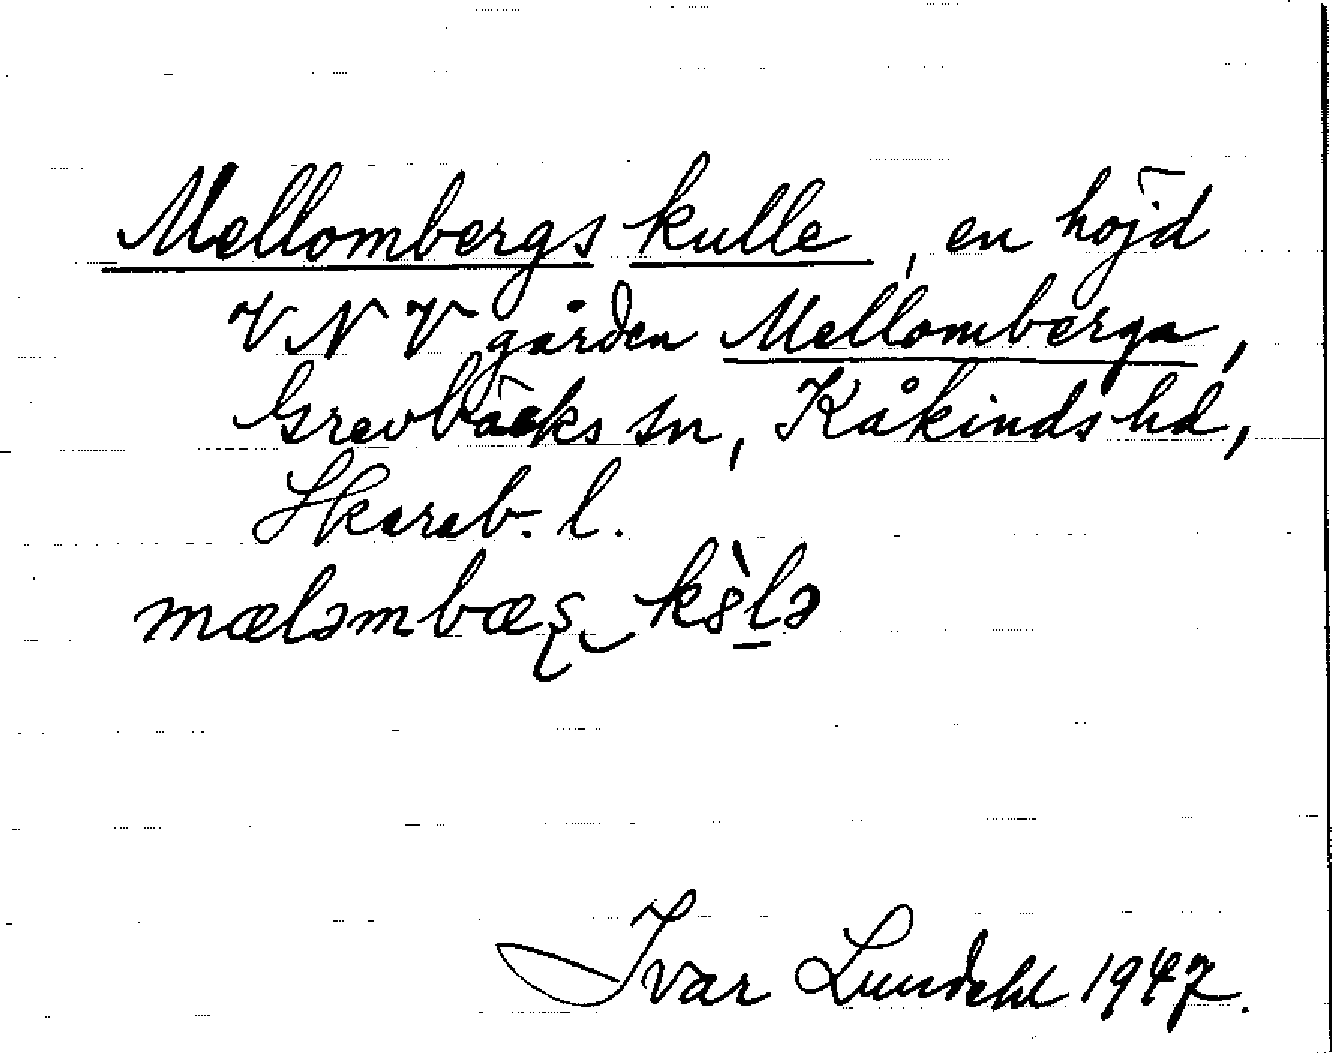 Mellombergs kulle, en höjd
VNV gården Mellomberga,
Grevbäcks sn, Kåkinds hd,
Skarab. l.
Ivar Lundahl 1947.